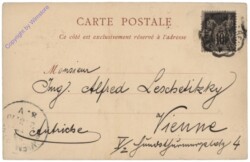 CARTE POSTALE
Ce côté est exclusivement réservé à l'adresse
Monsieur
Ing. Alfred Leschetitzky
Autriche
Vienne
V/2 Hundsthurmerplatz 4